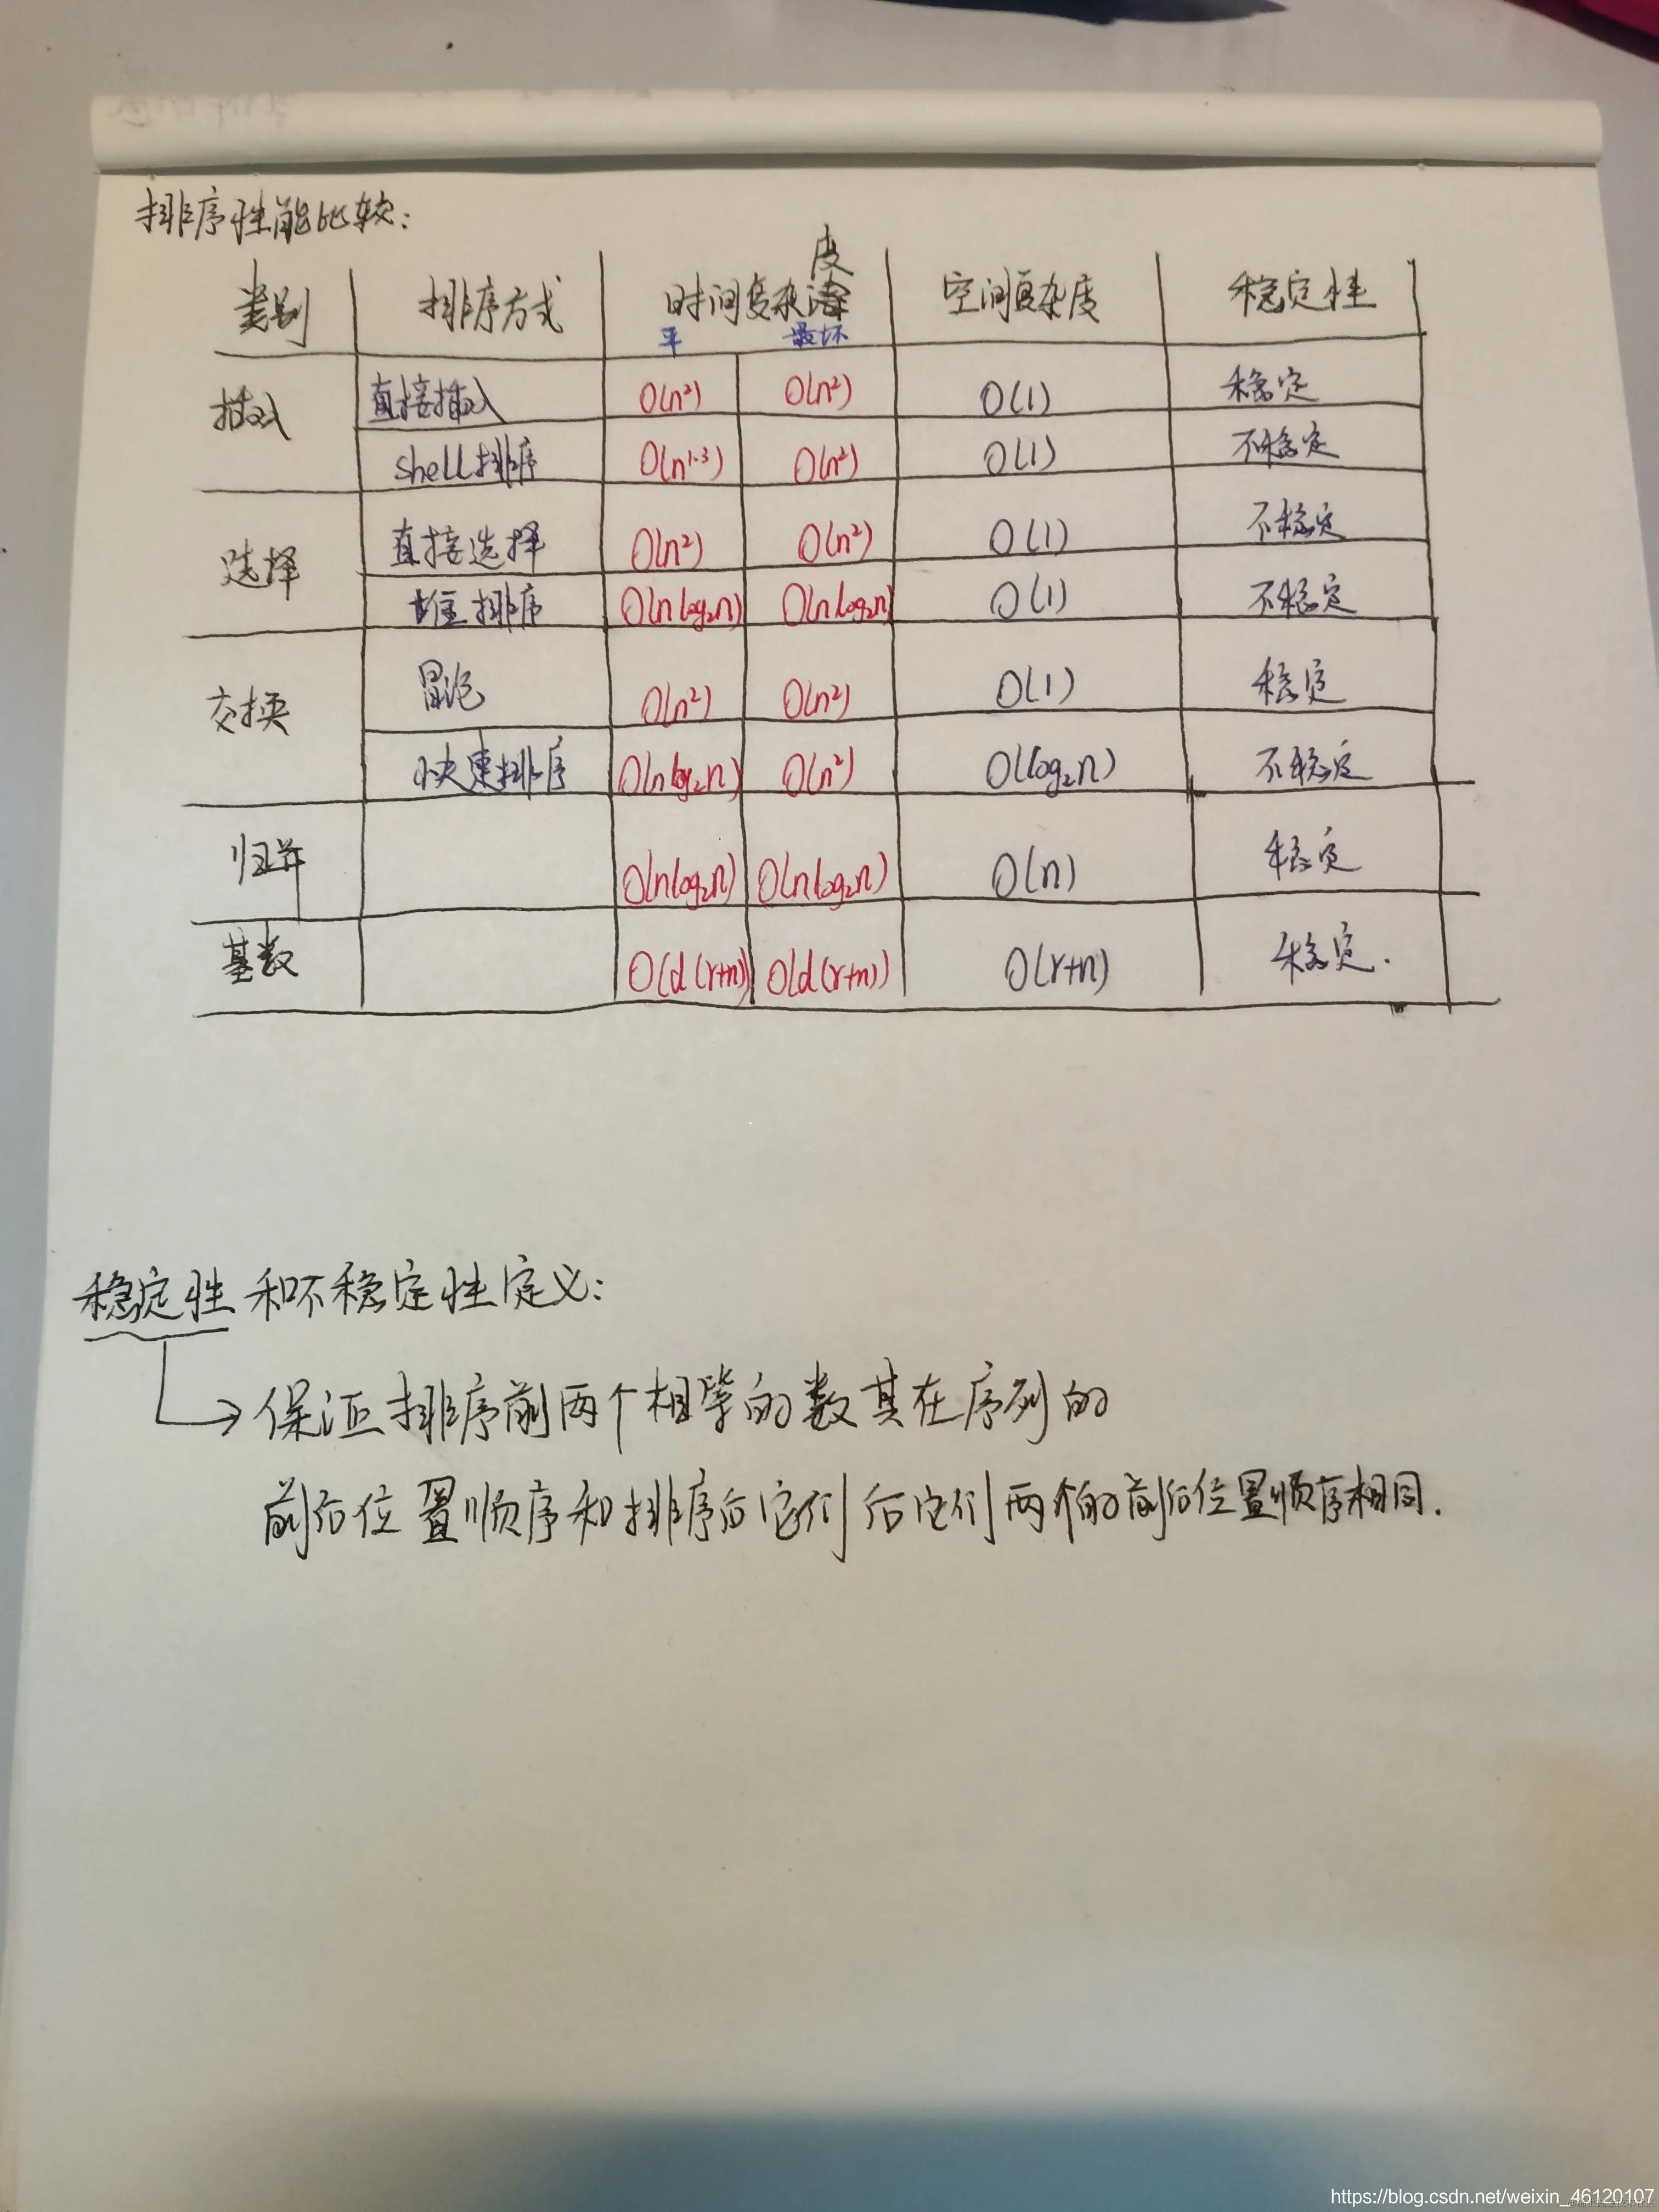 排序性能比较:
类别 排序方式 时间复杂度 空间复杂度 稳定性
平 最坏
插入 直接插入 O(n²) O(n²) O(1) 稳定
shell排序 O(n^1.3) O(n²) O(1) 不稳定
选择 直接选择 O(n²) O(n²) O(1) 不稳定
堆排序 O(nlog₂n) O(nlog₂n) O(1) 不稳定
交换 冒泡 O(n²) O(n²) O(1) 稳定
快速排序 O(nlog₂n) O(n²) O(log₂n) 不稳定
归并 O(nlog₂n) O(nlog₂n) O(n) 稳定
基数 O(d(r+n)) O(d(r+n)) O(r+n) 稳定.
稳定性和不稳定性定义:
→保证排序前两个相等的数其在序列的
前后位置顺序和排序后它们后它们两个的前后位置顺序相同.
https://blog.csdn.net/weixin_46120107